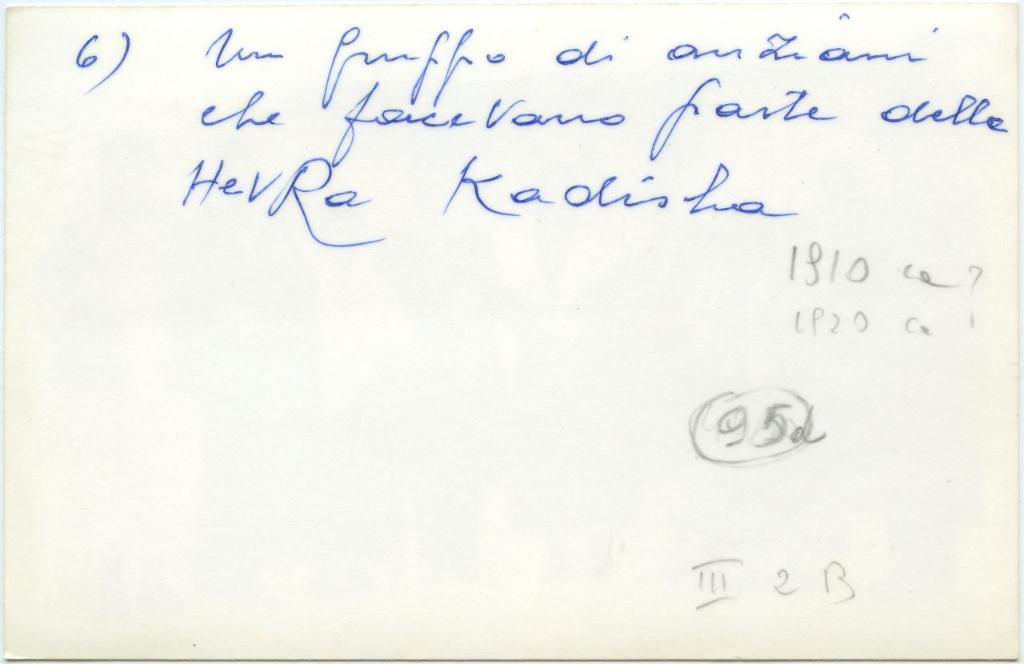 6) Un gruppo di anziani
che facevano parte della
HevRa Kadisha
1910 ca?
1920 ca
95a
III 2 B